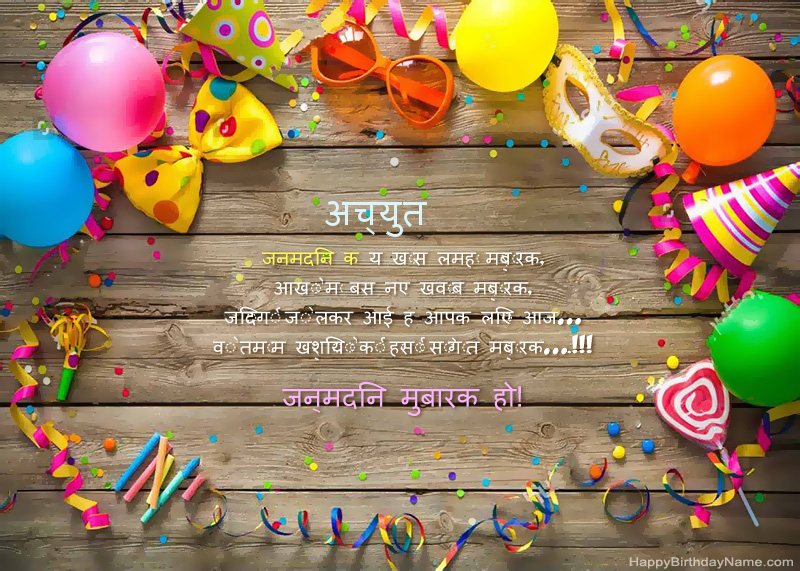 अच्युत
जनमदिन क य खास लमह मबारक,
आखों म बस नए ख्वाब मबारक,
जिंदगी जो लेकर आई ह आपक लिए आज...
वो तमाम खुशियों की हसीं सौगात मबारक...!!!
जन्मदिन मुबारक हो!
HappyBirthdayName.com